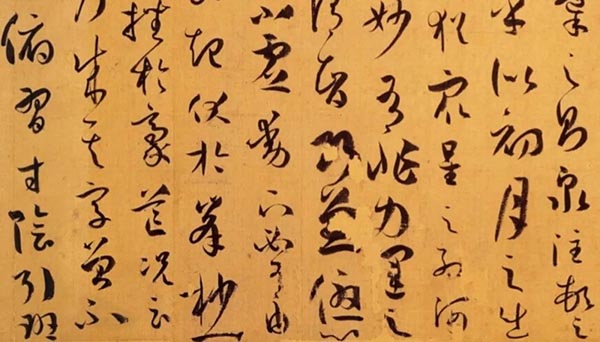 導之則泉注頓之
乎似初月之出
猶眾星之列河
妙有非力運之
謂智巧兼優心
不虛動下必有由
起伏於鋒杪一
挫於毫芒況云
乃成其字曾不
俯習寸陰引班